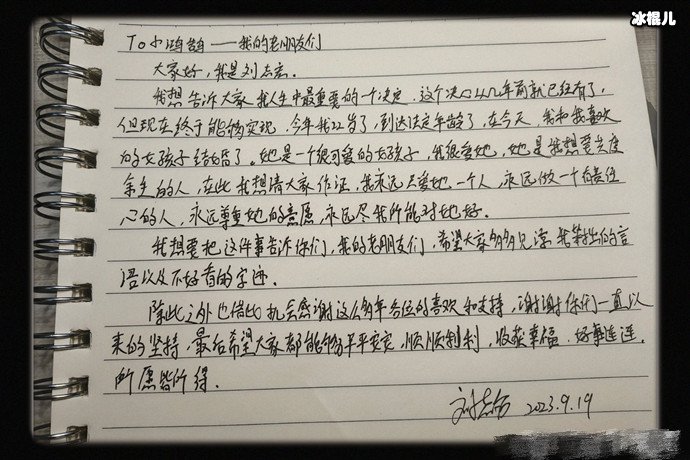 冰棍儿
To小鸿鹄——我的老朋友们
大家好,我是刘志宏。
我想告诉大家我人生中最重要的一个决定。这个决心从几年前就已经有了,
但现在终于能够实现。今年我22岁了,到达法定年龄了,在今天,我和我喜欢
的女孩子结婚了。她是一个很可爱的女孩子,我很爱她,她是我想要共度
余生的人,在此我想请大家作证,我永远只爱她一个人,永远做一个有责任
心的人,永远尊重她的意愿,永远尽我所能对她好。
我想要把这件事告诉你们,我的老朋友们,希望大家多多见谅我笨拙的言
语以及不好看的字迹。
除此之外也借此机会感谢这么多年各位的喜欢和支持,谢谢你们一直以
来的坚持,最后希望大家都能够平平安安,顺顺利利,收获幸福,好事连连,
所愿皆所得。
刘志宏 2023.9.19